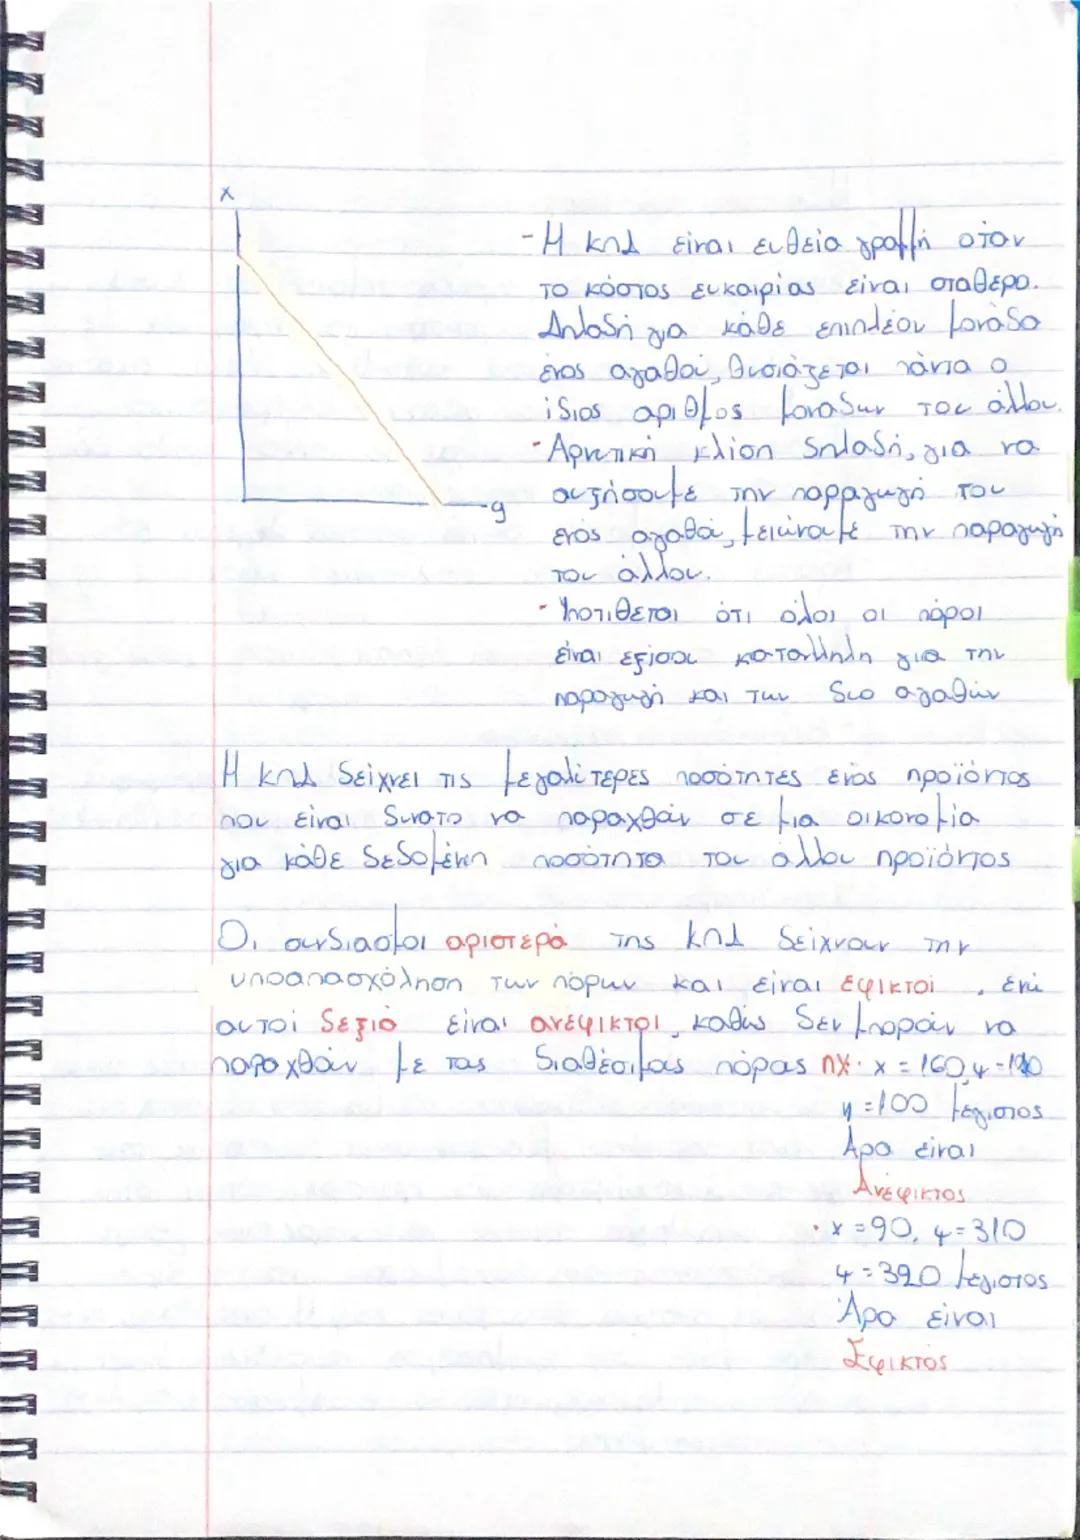 x
y
- Η ΚΠΔ είναι ευθεία γραμμή όταν
το κόστος ευκαιρίας είναι σταθερό.
Δηλαδή για κάθε επιπλέον μονάδα
ενός αγαθού, θυσιάζεται πάντα ο
ίδιος αριθμός μονάδων του άλλου.
- Αρνητική κλίση δηλαδή, για να
αυξήσουμε την παραγωγή του
ενός αγαθού, μειώνουμε την παραγωγή
του άλλου.
- Υποτίθεται ότι όλοι οι πόροι
είναι εξίσου κατάλληλη για την
παραγωγή και των δυο αγαθών
Η ΚΠΔ δείχνει τις μεγαλύτερες ποσότητες ενός προϊόντος
που είναι δυνατό να παραχθούν σε μια οικονομία
για κάθε δεδομένη ποσότητα του άλλου προϊόντος
Οι συνδιασμοί αριστερά της ΚΠΔ δείχνουν την
υποαπασχόληση των πόρων και είναι εφικτοί, ενώ
αυτοί δεξιά είναι ανέφικτοι, καθώς δεν μπορούν να
παραχθούν με τους διαθέσιμους πόρους πχ. x = 160, ψ =
ψ = 100 μέγιστος
Άρα είναι
Ανέφικτος
• x = 90, ψ = 310
ψ = 390 μέγιστος
Άρα είναι
Εφικτός